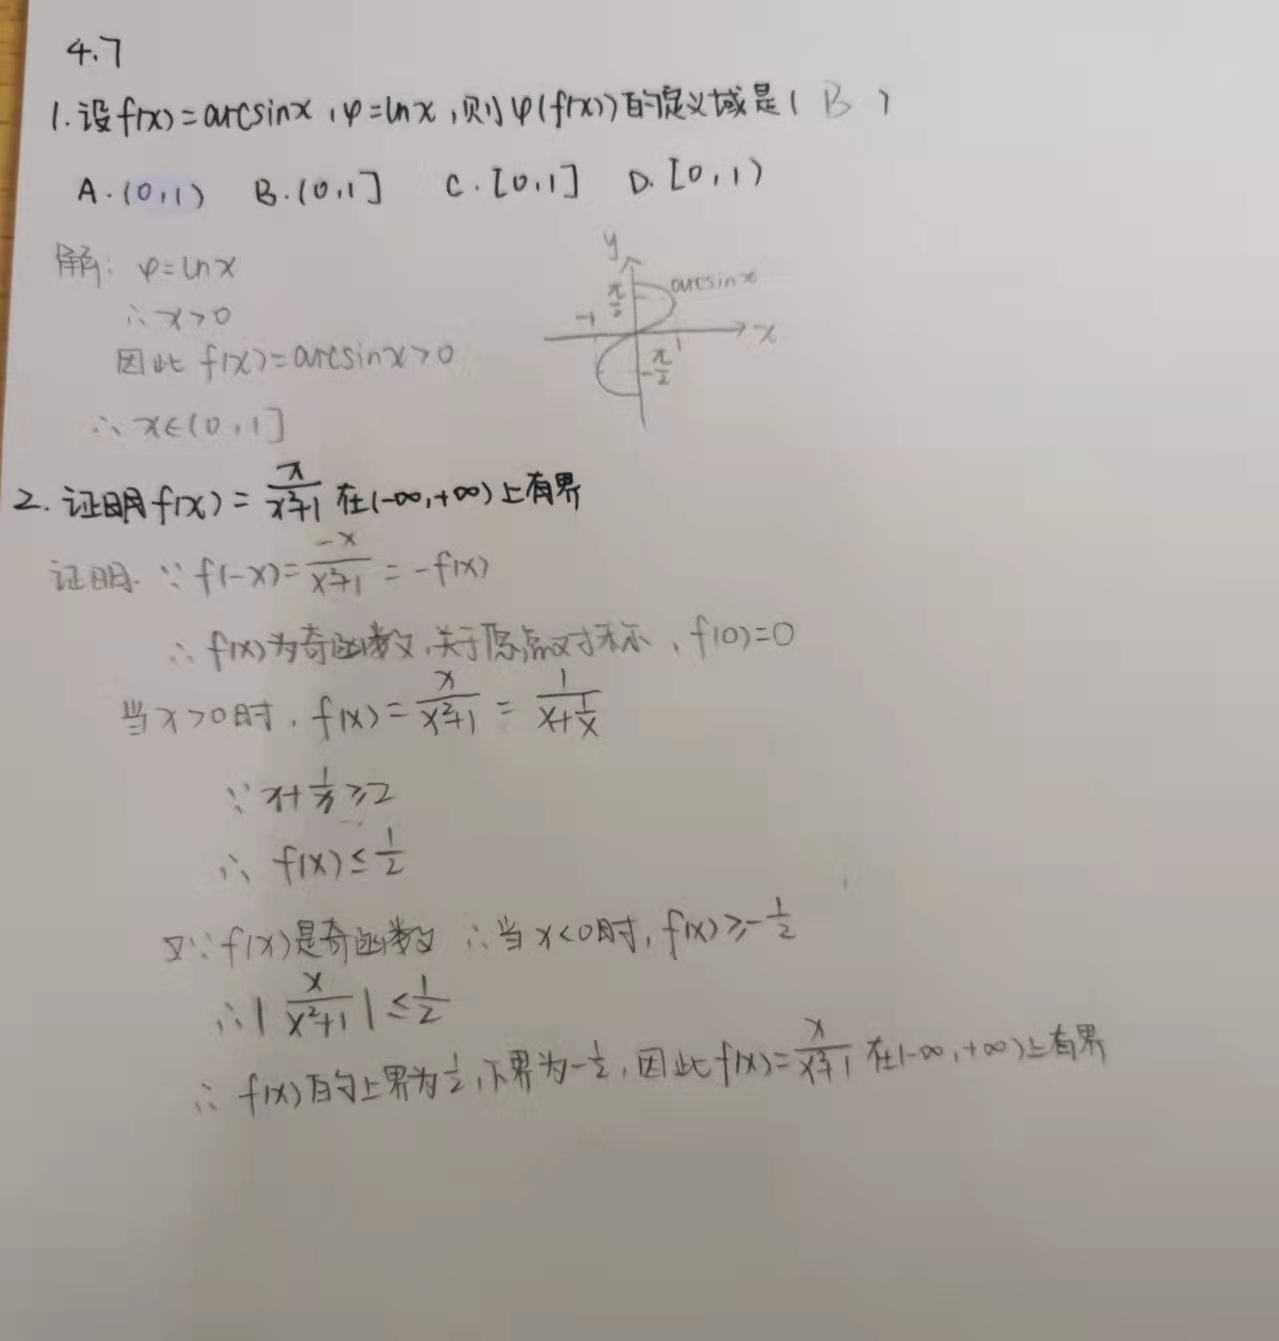 4.7
1.设f(x)=arcsinx,φ=lnx,则φ(f(x))的定义域是( B )
A.(0,1) B.(0,1] C.[0,1] D.[0,1)
解: φ=lnx
∴x>0
因此 f(x)=arcsinx>0
∴x∈(0,1]
y
π/2
arcsinx
-1
1
x
-π/2
2.证明f(x)=x/(x²+1)在(-∞,+∞)上有界
证明.∵f(-x)=-x/(x²+1)=-f(x)
∴f(x)为奇函数,关于原点对称,f(0)=0
当x>0时,f(x)=x/(x²+1)=1/(x+1/x)
∵x+1/x≥2
∴f(x)≤1/2
又∵f(x)是奇函数 ∴当x<0时,f(x)≥-1/2
∴|x/(x²+1)|≤1/2
∴f(x)的上界为1/2,下界为-1/2,因此f(x)=x/(x²+1)在(-∞,+∞)上有界